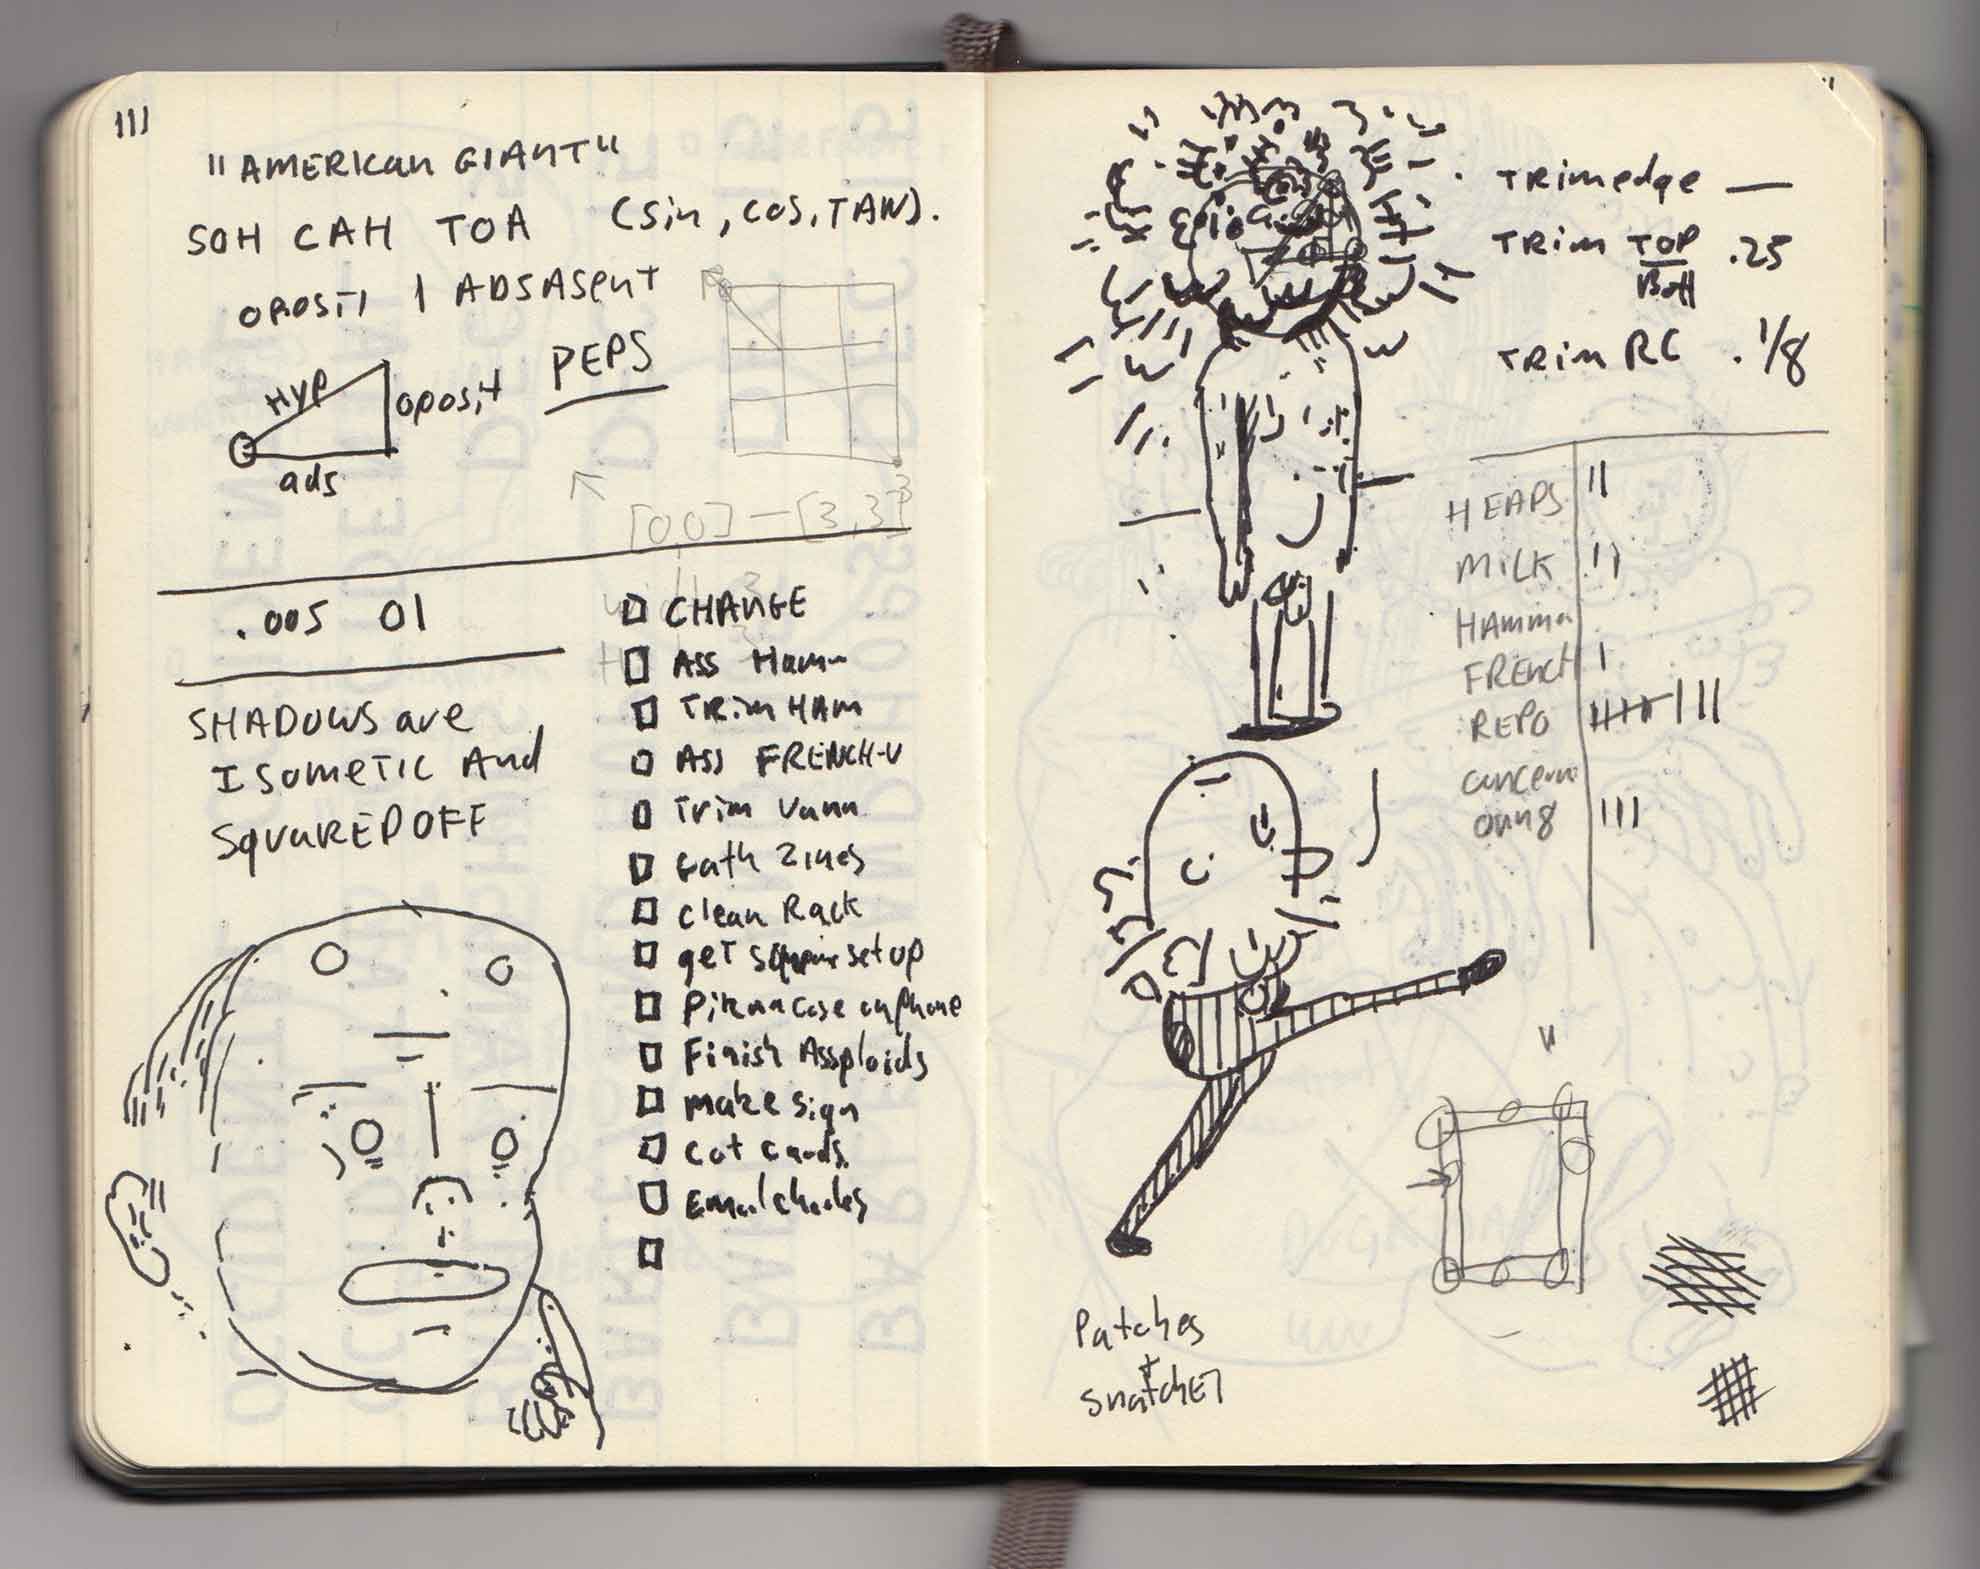 "AMERICAN GIANT"
SOH CAH TOA (Sin, COS, TAN).
OPOSIT | ADSASENT
PEPS
Hyp
oposit
ads
[0,0] – [3,3]
.005 01
SHADOWS are
ISOMETIC And
SQUAREDOFF
CHANGE
Ass Hamm
TRim HAM
ASS FRENCH-V
Trim Vann
Gath Zines
Clean Rack
geT square set up
on phone
Finish Assploids
make sign
Cut Cards
Email
TRimedge —
TRim TOP .25
BOTT
TRim RC . 1/8
HEAPS ||
MILK ||
HAMMA
FRENCH |
REPO |||| |||
|||
Patches
+
SnatchET